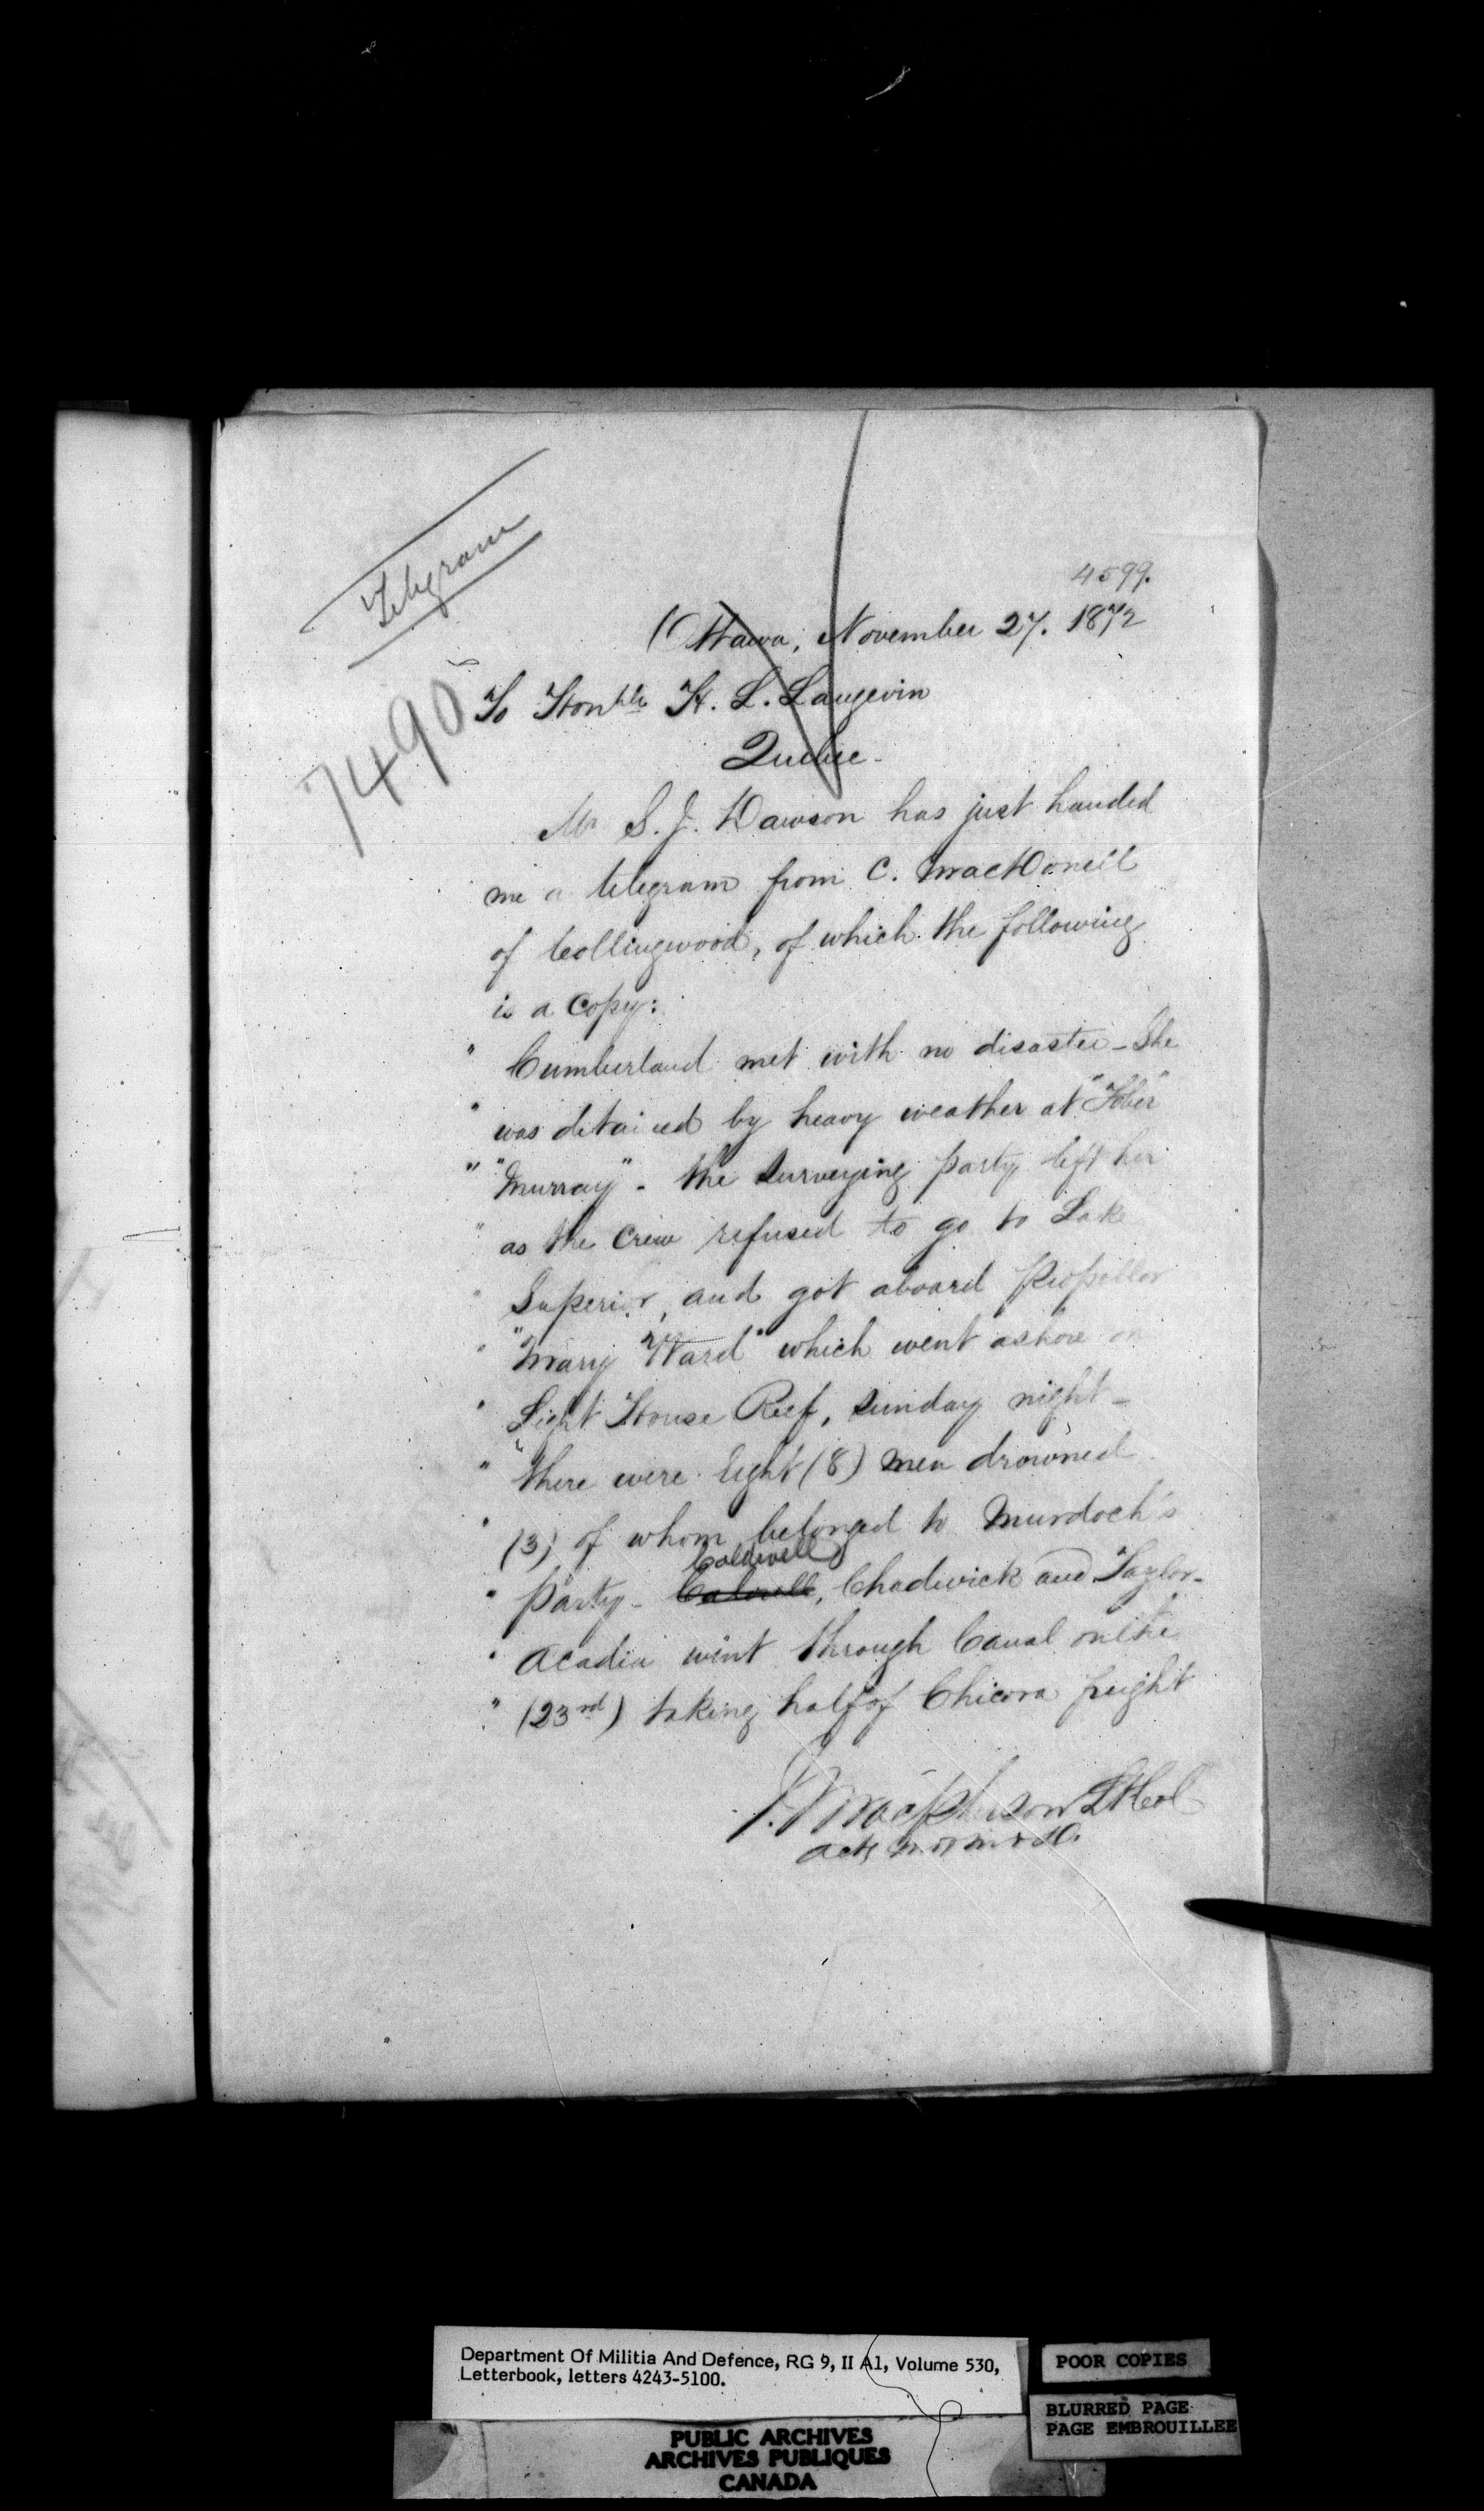 Telegram
4599.
Ottawa, November 27. 1872
7490
To Honble H. L. Langevin
Quebec -
Mr S. J. Dawson has just handed
me a telegram from C. MacDonell
of Collingwood, of which the following
is a Copy:
" Cumberland met with no disaster - She
" was detained by heavy weather at "Tober"
" "Murray" - the Surveying party left her
" as the Crew refused to go to Lake
" Superior, and got aboard Propellor
" "Mary Ward" which went ashore on
" Light House Reef, Sunday night -
" there were Eight (8) men drowned
" (3) of whom belonged to Murdoch's
Caldwell
" Party - Calwell, Chadwick and Taylor -
" Acadia went through Canal on the
" (23rd) taking half of Chicora freight
J. Macpherson Lt Col
Actg
Department Of Militia And Defence, RG 9, II A1, Volume 530,
Letterbook, letters 4243-5100.
POOR COPIES
BLURRED PAGE
PAGE EMBROUILLEE
PUBLIC ARCHIVES
ARCHIVES PUBLIQUES
CANADA